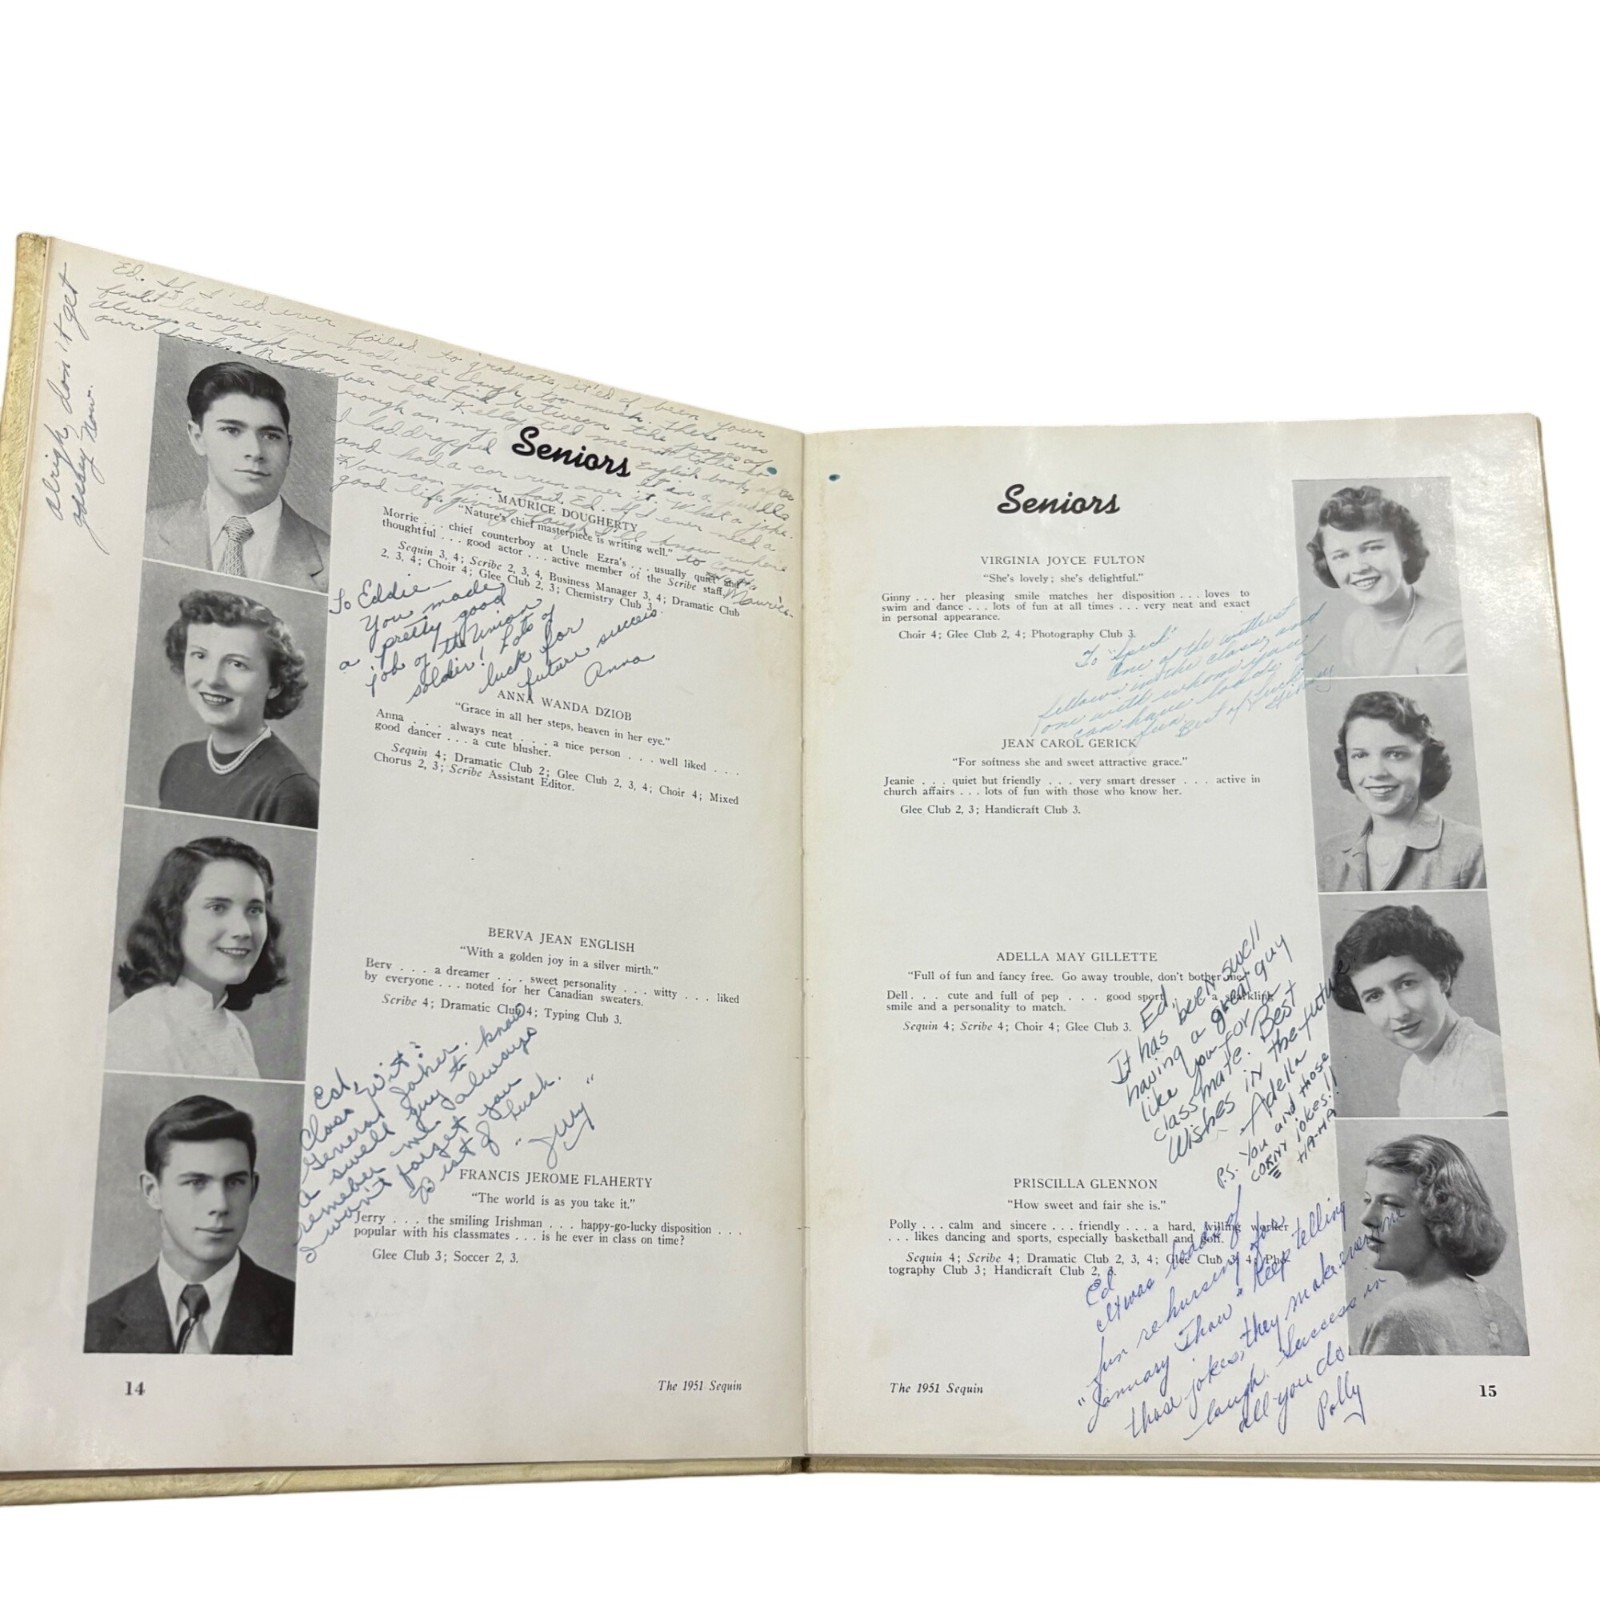 alrigh, don't get
gooshey now.
Ed. If I'ed ever failed to graduate, it'ed of been your
fault because you made me laugh too much. There was
always a laugh you could find between the pages of
our books. Remember how Kelley told me not to lie to
through an my English book
I had dropped
and had a car run over it. What a joke.
How can you Ed. If I ever need a
good life giving laugh I'll know where
to come
Maurice.
Seniors
MAURICE DOUGHERTY
“Nature's chief masterpiece is writing well.”
Morrie . . . chief counterboy at Uncle Ezra's . . . usually quiet and
thoughtful . . . good actor . . . active member of the Scribe staff.
Sequin 3, 4; Scribe 2, 3, 4, Business Manager 3, 4; Dramatic Club
2, 3, 4; Choir 4; Glee Club 2, 3; Chemistry Club 3.
To Eddie —
You made
a pretty good
job of the Union
soldier! Lots of
luck for
future success.
Anna
ANNA WANDA DZIOB
“Grace in all her steps, heaven in her eye.”
Anna . . . always neat . . . a nice person . . . well liked . . .
good dancer . . . a cute blusher.
Sequin 4; Dramatic Club 2; Glee Club 2, 3, 4; Choir 4; Mixed
Chorus 2, 3; Scribe Assistant Editor.
BERVA JEAN ENGLISH
“With a golden joy in a silver mirth.”
Berv . . . a dreamer . . . sweet personality . . . witty . . . liked
by everyone . . . noted for her Canadian sweaters.
Scribe 4; Dramatic Club 4; Typing Club 3.
Ed,
Class wit?
General Joker.
a swell guy to know
remeber me always
I won't forget you
Best of luck.
"Jerry"
FRANCIS JEROME FLAHERTY
“The world is as you take it.”
Jerry . . . the smiling Irishman . . . happy-go-lucky disposition . . .
popular with his classmates . . . is he ever in class on time?
Glee Club 3; Soccer 2, 3.
14
The 1951 Sequin
Seniors
VIRGINIA JOYCE FULTON
“She's lovely; she's delightful.”
Ginny . . . her pleasing smile matches her disposition . . . loves to
swim and dance . . . lots of fun at all times . . . very neat and exact
in personal appearance.
Choir 4; Glee Club 2, 4; Photography Club 3.
To "Sped"
One of the wittiest
fellows in the class, and
one with whom you
can have loads of
fun. Best of Luck
Ginny
JEAN CAROL GERICK
“For softness she and sweet attractive grace.”
Jeanie . . . quiet but friendly . . . very smart dresser . . . active in
church affairs . . . lots of fun with those who know her.
Glee Club 2, 3; Handicraft Club 3.
ADELLA MAY GILLETTE
“Full of fun and fancy free. Go away trouble, don't bother me.”
Dell . . . cute and full of pep . . . good sport . . . a sparkling
smile and a personality to match.
Sequin 4; Scribe 4; Choir 4; Glee Club 3.
Ed,
It has been swell
having a great guy
like you for a
classmate. Best
wishes in the future
Adella
P.S. You and those
CORNY jokes!!
HA-HA
PRISCILLA GLENNON
“How sweet and fair she is.”
Polly . . . calm and sincere . . . friendly . . . a hard, willing worker
. . . likes dancing and sports, especially basketball and golf.
Sequin 4; Scribe 4; Dramatic Club 2, 3, 4; Glee Club 3, 4; Pho-
tography Club 3; Handicraft Club 2, 3.
Ed
It was loads of
fun rehursing for
"January Thaw" Keep telling
those jokes, they make everyone
laugh. Success in
all you do
Polly
The 1951 Sequin
15